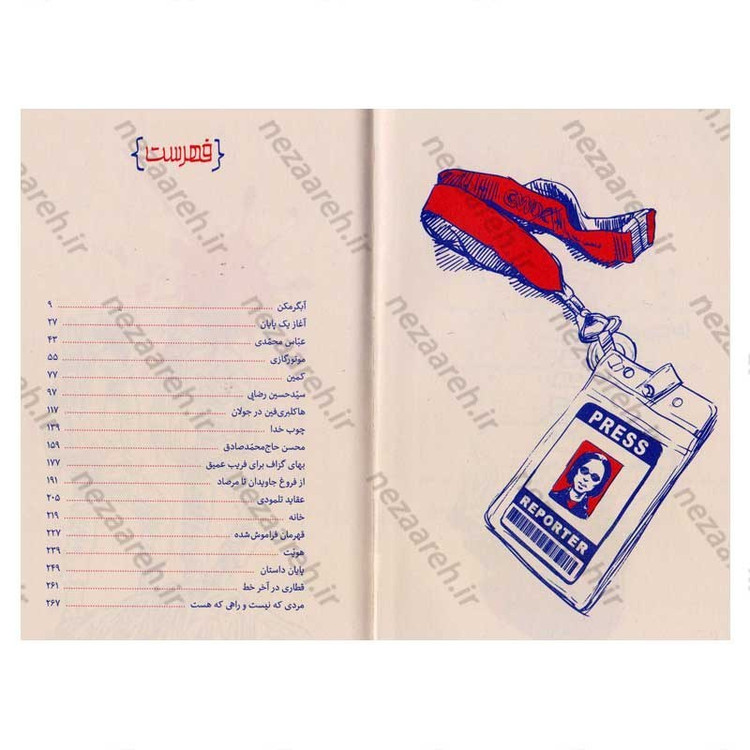 {فهرست}
آبگرمکن ۹
آغاز یک پایان ۲۷
عبّاس محمّدی ۴۳
موتورگازی ۵۵
کمین ۷۷
سیّدحسین رضایی ۹۷
هاکلبری‌فین در جولان ۱۱۷
چوب خدا ۱۳۹
محسن حاج‌محمّدصادق ۱۵۹
بهای گزاف برای فریب عمیق ۱۷۷
از فروغ جاویدان تا مرصاد ۱۹۱
عقاید تلمودی ۲۰۵
خانه ۲۱۹
قهرمان فراموش‌شده ۲۲۷
هویّت ۲۳۹
پایان داستان ۲۴۹
قطاری در آخر خط ۲۶۱
مردی که نیست و راهی که هست ۲۶۷
PRESS
REPORTER
nezaareh.ir